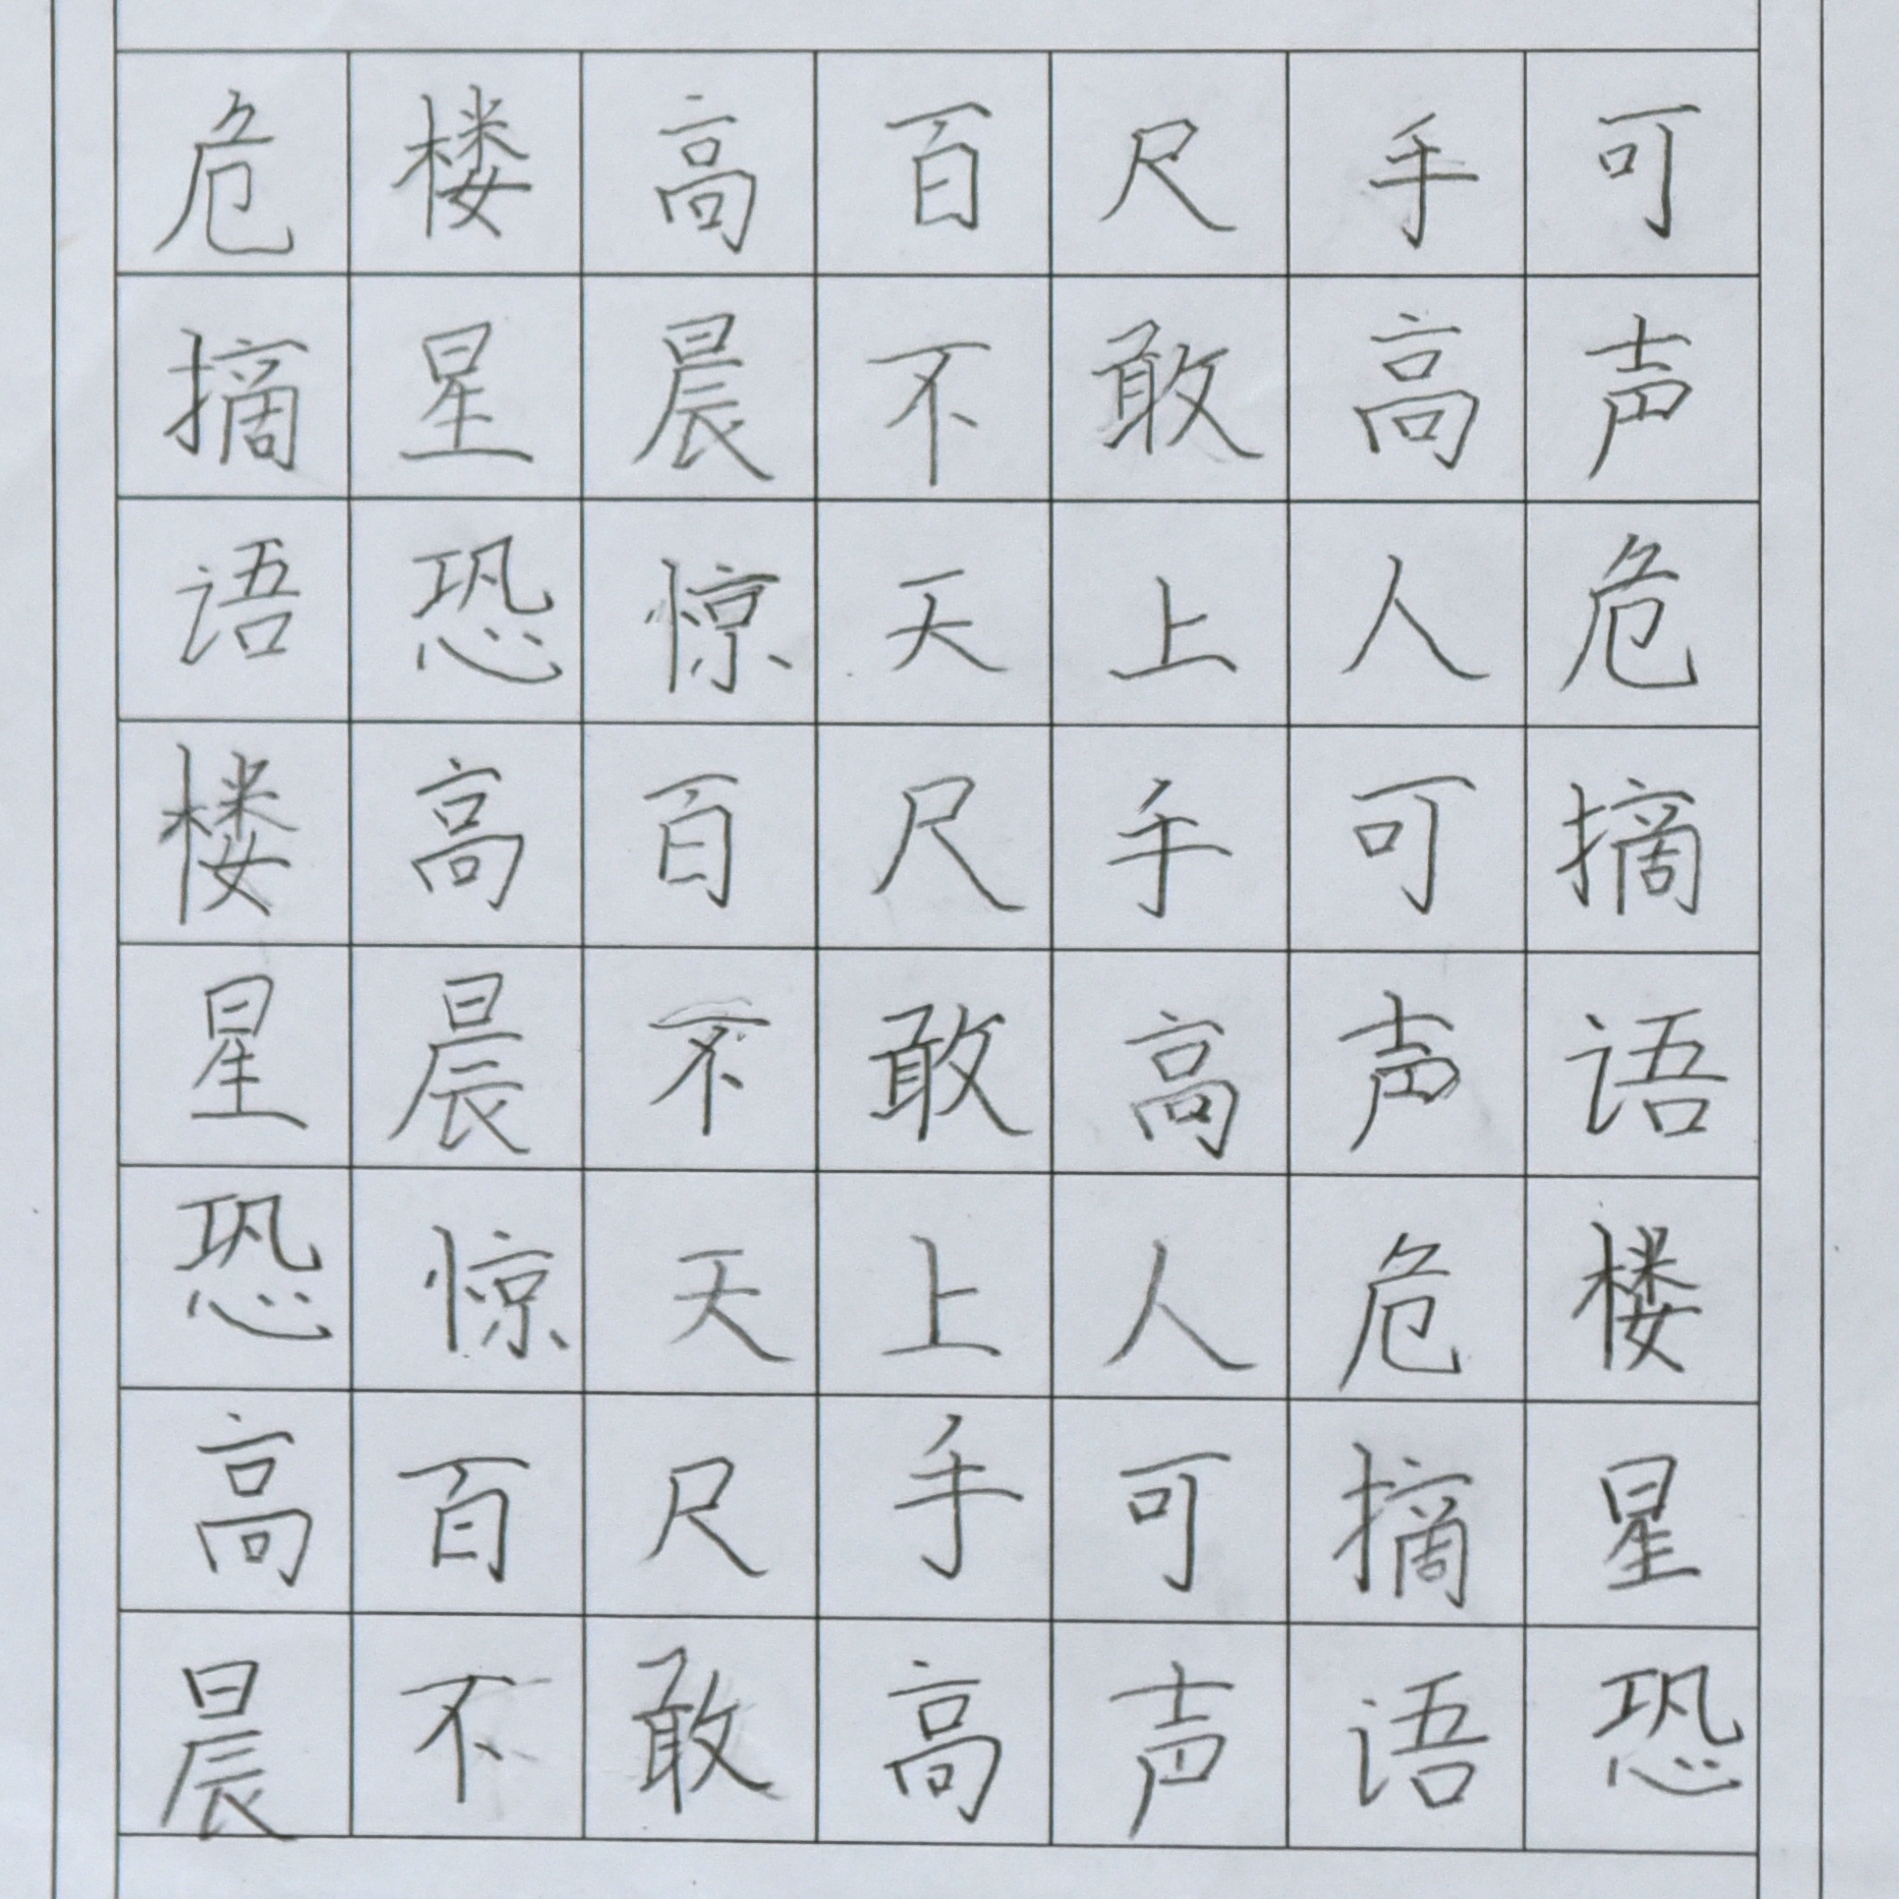 危楼高百尺手可
摘星晨不敢高声
语恐惊天上人危
楼高百尺手可摘
星晨不敢高声语
恐惊天上人危楼
高百尺手可摘星
晨不敢高声语恐